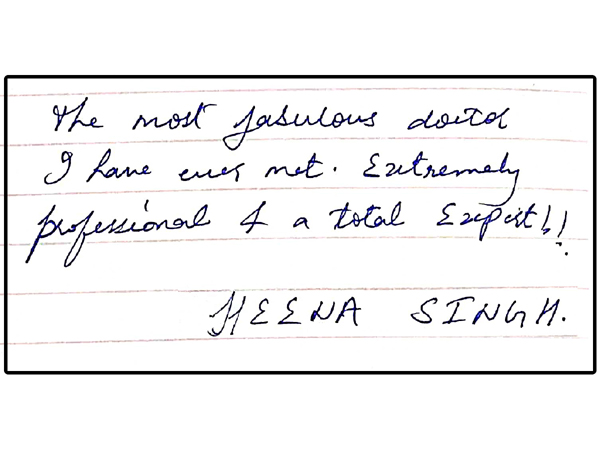 The most fabulous doctor
I have ever met. Extremely
professional & a total Expert!!
HEENA SINGH.